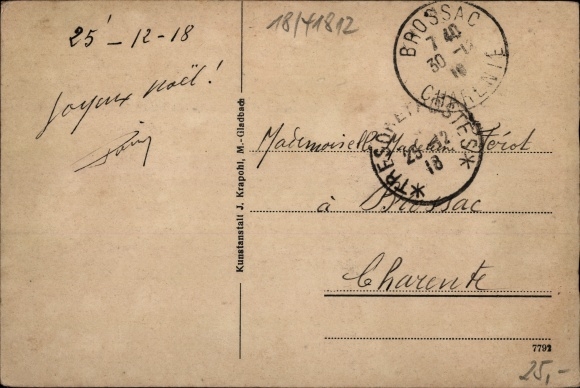 25-12-18
Joyeux noël!
18/41812
BROSSAC
7 40
30 -12
18
CHARENTE
TRESOR ET POSTES
25-12
18
Mademoiselle Férot
à Brossac
Charente
Kunstanstalt J. Krapohl, M.-Gladbach
7792
25,-